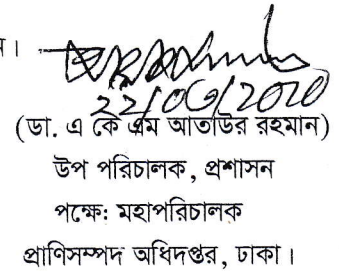 ।
22/06/2020
(ডা. এ কে এম আতাউর রহমান)
উপ পরিচালক, প্রশাসন
পক্ষে: মহাপরিচালক
প্রাণিসম্পদ অধিদপ্তর, ঢাকা।